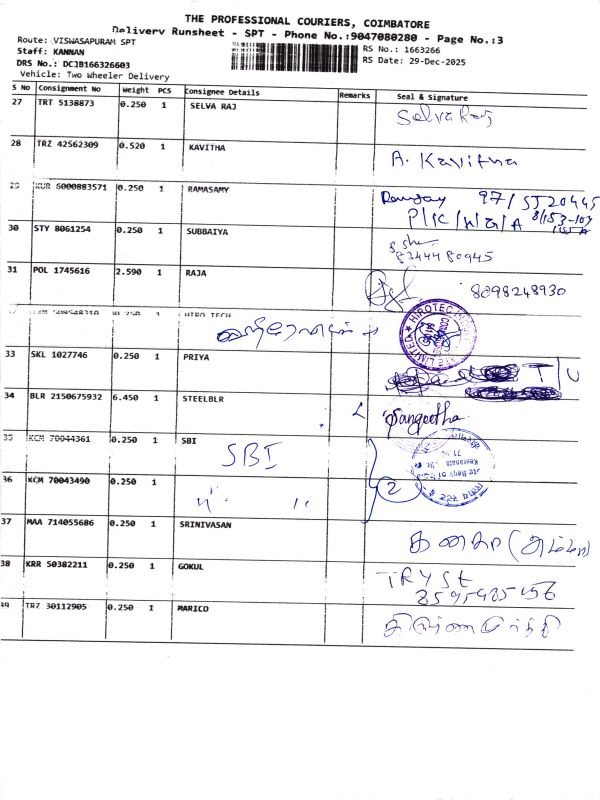 THE PROFESSIONAL COURIERS, COIMBATORE
Delivery Runsheet - SPT - Phone No.:9047080280 - Page No.:3
Route: VISWASAPURAM SPT
Staff: KANNAN
DRS No.: DCJB166326603
Vehicle: Two Wheeler Delivery
RS No.: 1663266
RS Date: 29-Dec-2025
S No Consignment No Weight PCS Consignee Details Remarks Seal & Signature
27 TRT 5138873 0.250 1 SELVA RAJ Selva Raj
28 TRZ 42562309 0.520 1 KAVITHA A. Kavitha
29 KUR 6000883571 0.250 1 RAMASAMY
30 STY 8061254 0.250 1 SUBBAIYA 8344480945
31 POL 1745616 2.590 1 RAJA 8898248930
HIRO TECH
33 SKL 1027746 0.250 1 PRIYA
34 BLR 2150675932 6.450 1 STEELBLR Sangeetha
35 KCM 70044361 0.250 1 SBI SBI
36 KCM 70043490 0.250 1 2
37 MAA 714055686 0.250 1 SRINIVASAN
38 KRR 50382211 0.250 1 GOKUL TRYSt
39 TRZ 30112905 0.250 1 MARICO